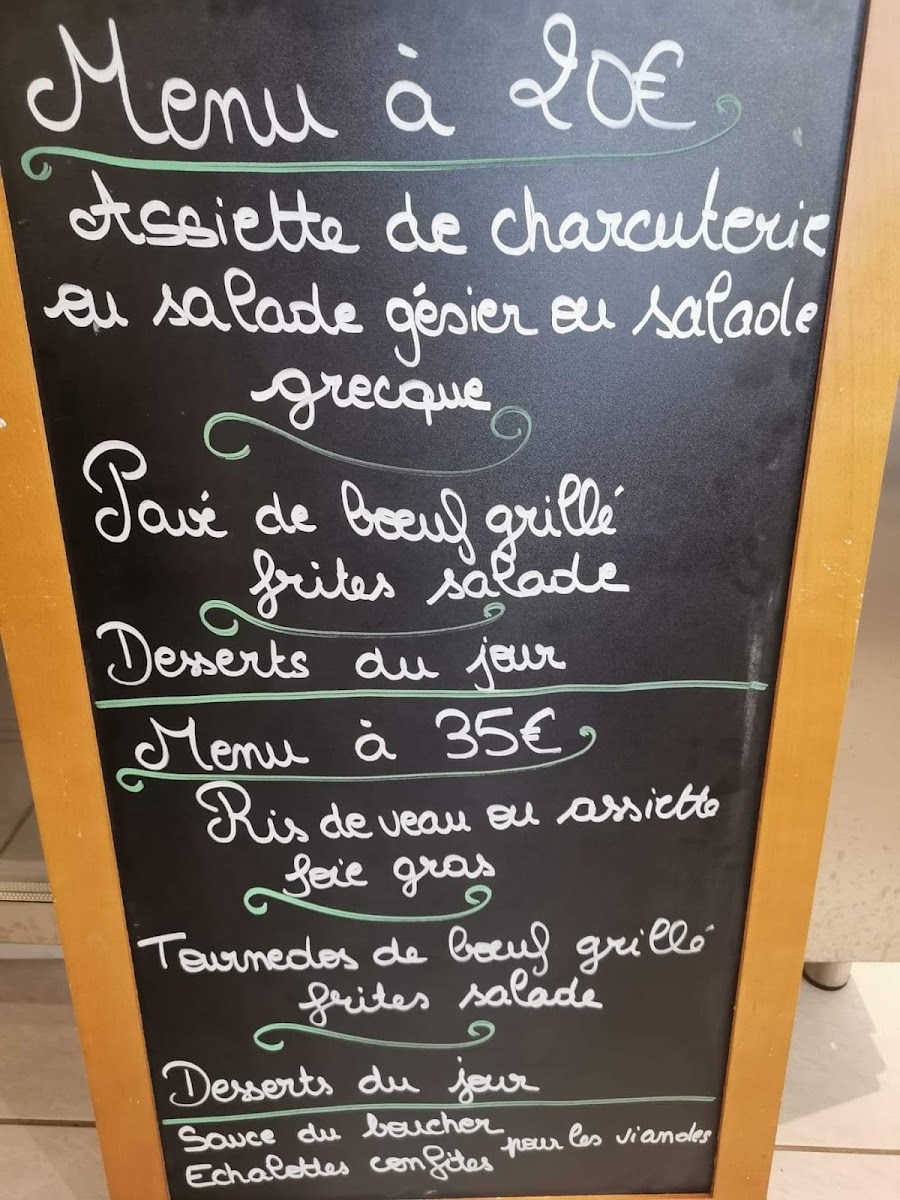 Menu à 20€
Assiette de charcuterie
ou salade gésier ou salade
grecque
Pavé de bœuf grillé
frites salade
Desserts du jour
Menu à 35€
Ris de veau ou assiette
foie gras
Tournedos de bœuf grillé
frites salade
Desserts du jour
Sauce du boucher
Echalottes confites pour les viandes